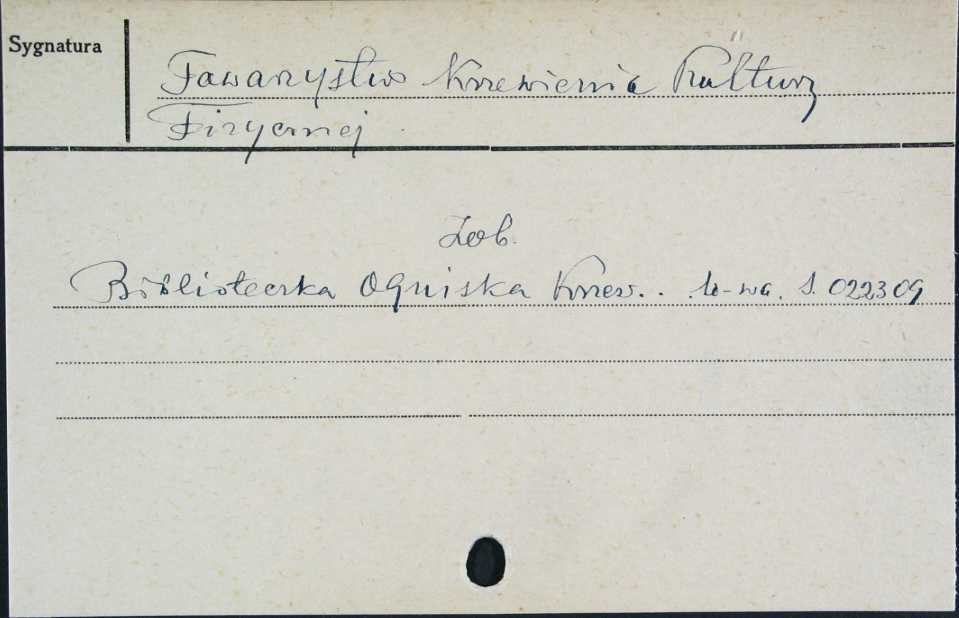 Sygnatura
Towarzystwo Krzewienia Kultury
Fizycznej
Zob.
Biblioteczka Ogniska Krzew. . . W-wa. S. 022309